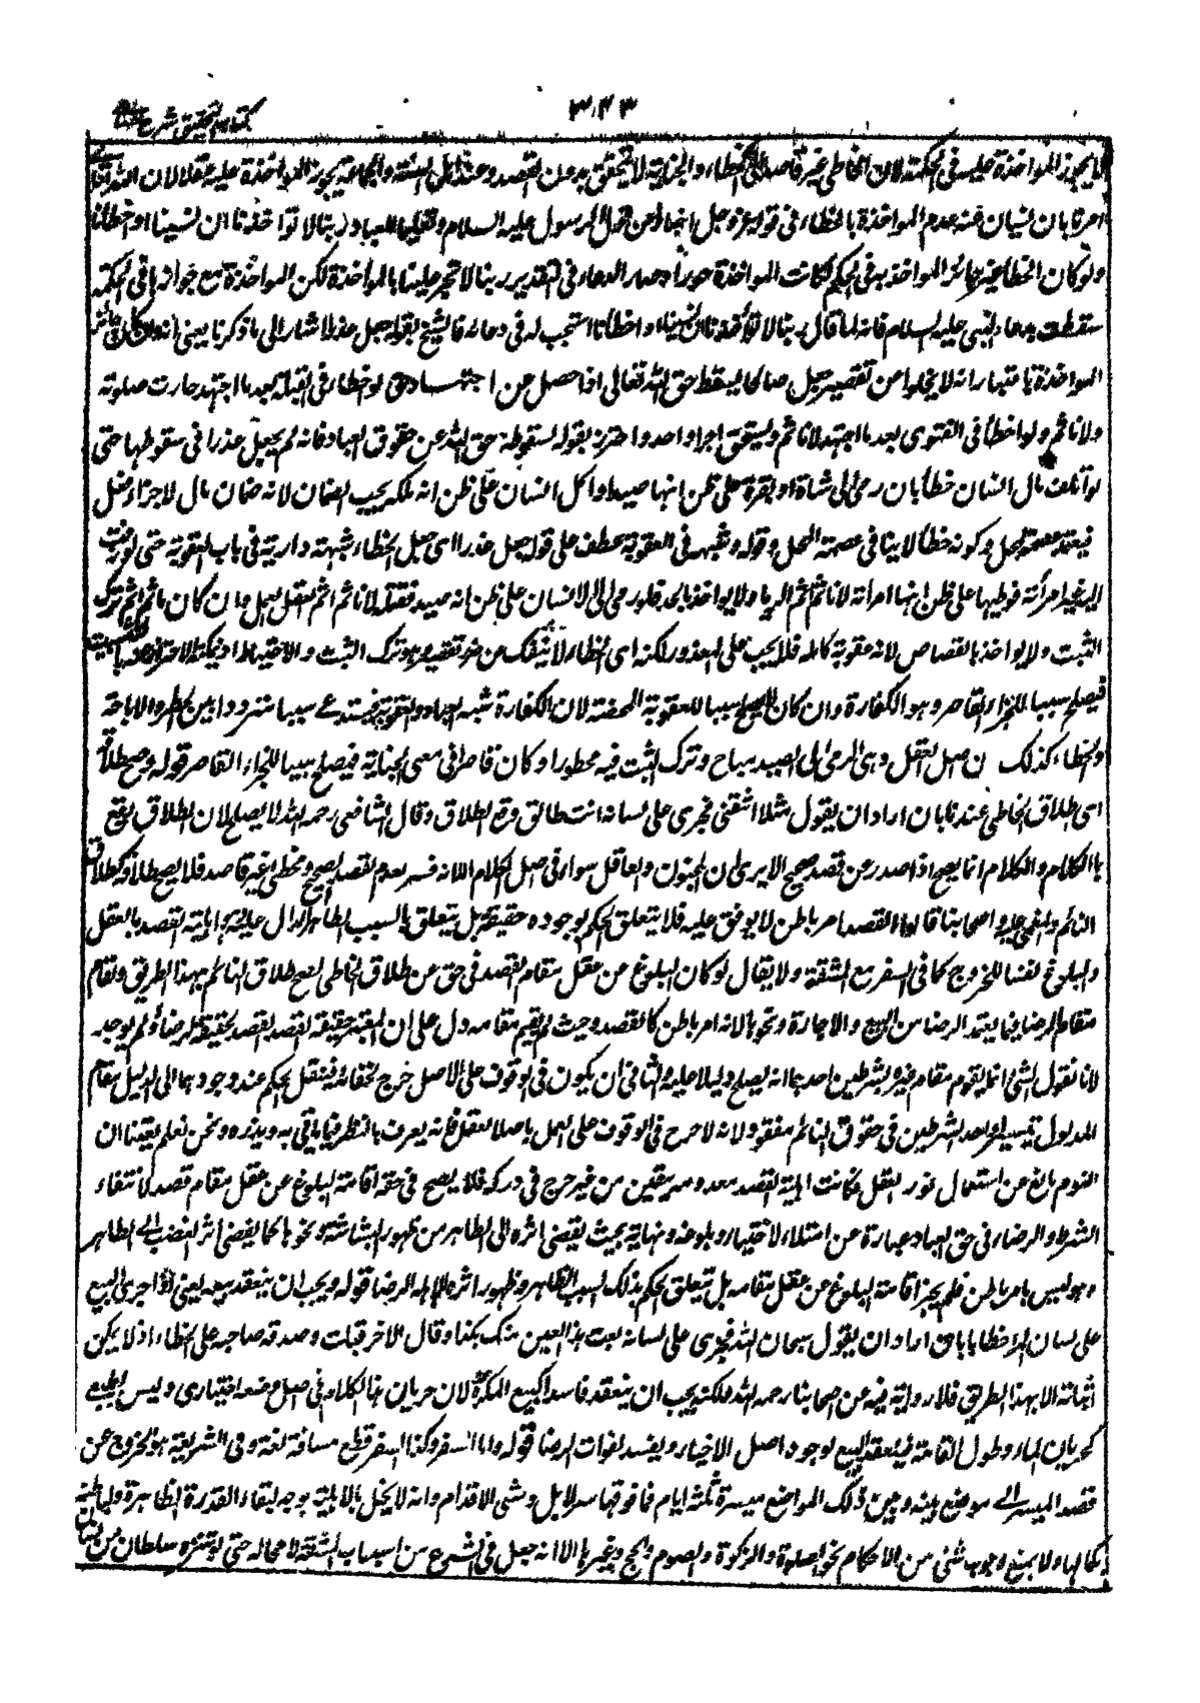 ٣٤٣
كتاب التحقيق شرح
لا يجوز المواخذة عليه في الحكمة لان الخاطي غير قاصد الخطاء والجناية لا يتحقق بدون القصد وعند اهل السنة والجماعة يجوز المواخذة عليه عقلا لان الله تعالى
امرنا بان نسيان عنه عدم المواخذة بالخطاء في قوله عز وجل اخبارا عن قول الرسول عليه السلام وتعليما للعباد ربنا لا تواخذنا ان نسينا او اخطأنا
ولو كان الخطأ غير جائز المواخذ به في الحكمة لكانت المواخذة جورا وصار الدعاء في التقدير ربنا لا تجر علينا بالمواخذة لكن المواخذة مع جوازها في الحكمة
سقطت بدعاء النبي عليه السلام فانه لما قال ربنا لا تؤاخذنا ان نسينا او اخطأنا استجيب له في دعائه فالشيخ بقوله جعل عذرا اشار الى ما ذكرنا يعني انه وان كان جائز
المواخذة باعتبار انه لا يخلوا من تقصير جعل صالحا لسقط حق الله تعالى اذا حصل عن اجتهاد حتى لو خطاء في القبلة بعد ما اجتهد جازت صلوته
ولا ناثم ولو اخطأ في الفتوى بعد ما اجتهد لا ناثم ويستحق اجرا واحدا واحترز بقوله لسقوطه حق الله عن حقوق العباد فانه لم يجعل عذرا في سقوطها حتى
لو اتلف مال انسان خطأ بان رمى الى شاة او بقرة على ظن انها صيد او اكل انسان على ظن انه ملكه يجب الضمان لانه ضمان مال لا جزاء فعل
فيعتمد عصمة المحل وكونه خطأ لا ينافي عصمة المحل وقوله وشبهه في العقوبة عطف على قوله جعل عذرا اى جعل الخطاء شبهة دارية في باب العقوبة حتى لو زفت
اليه غير امرأته فوطيها على ظن انها امرأته لا ناثم اثم الزنا ولا يواخذ بالحد ولو رمى الى انسان على ظن انه صيد فقتله لا ناثم اثم القتل العمد وان كان ياثم اثم ترك
التثبت ولا يواخذ بالقصاص لانه عقوبة كاملة فلا يجب على المعذور لكنه اى الخطاء لا ينفك عن ضرب تقصير وهو ترك التثبت والاحتياط اذ يمكنه الاحتراز عنه
فيصلح سببا للجزاء القاصر وهو الكفارة وان كان لا يصلح سببا للعقوبة المحضة لان الكفارة تشبه العبادة والعقوبة فيستدعى سببا مترددا بين الحظر والاباحة
والخطاء كذلك لان اصل الفعل وهى الرمى الى الصيد مباح وترك التثبت فيه محظور او كان قاصرا في معنى الجناية فيصلح سببا للجزاء القاصر قوله وصح طلاقه
اى طلاق الخاطي عندنا بان اراد ان يقول مثلا اسقنى فجرى على لسانه انت طالق وقع الطلاق وقال الشافعى رحمه الله لا يصلح لان الطلاق يوقع
بالكلام والكلام انما يصح اذا صدر عن قصد صحيح الا يرى ان المجنون والعاقل سواء في اصل الكلام الا انه فسد لعدم القصد الصحيح والمخطى غير قاصد فلا يصح طلاقه كطلاق
النائم والمغمى عليه واصحابنا قالوا القصد امر باطن لا يوقف عليه فلا يتعلق الحكم بوجوده حقيقة بل يتعلق بالسبب الظاهر الدال عليه وهو اهلية القصد بالعقل
والبلوغ نفيا للحرج كما في السفر مع المشقة ولا يقال لو كان البلوغ عن عقل مقام القصد في حق عن طلاق الخاطي لصح طلاق النائم بهذا الطريق ولقام
مقام الرضا فيما يعتمد الرضا من البيع والاجارة ونحوها لانه امر باطن كالقصد وحيث لم يقم مقامه دل على ان المعتبر حقيقة القصد لحقيقة الرضا ولم يوجد
لانا نقول الشئ انما يقوم مقام غيره بشرطين احدهما انه يصلح دليلا عليه والثاني ان يكون في الوقوف على الاصل حرج لخفائه فينقل الحكم عند وجودهما الى الدليل مقام
المدلول تيسيرا واحد الشرطين في حق النائم مفقود لانه لا حرج في الوقوف على العمل باصل العقل فانه يعرف بالنظر فيما ياتى به ويذره ونحن نعلم يقينا ان
النوم مانع عن استعمال نور العقل فكانت اهلية القصد معدومة بيقين من غير حرج في دركه فلا يصح في حقه اقامة البلوغ عن عقل مقام قصد لانتفاء
الشرط والرضاء في حق العباد عبارة عن امتلاء الاختيار وبلوغه نهايته بحيث يفضى اثره الى الظاهر من ظهور البشاشة ونحوها كما يفضى اثر الغضب الى الظاهر
وهو ليس بامر باطن فلم يجز اقامة البلوغ عن عقل مقامه بل يتعلق الحكم بذلك السبب الظاهر وظهور اثره الدال الرضا قوله ويجب ان ينعقد بيعه يعنى اذا جرى البيع
على لسان المرء خطأ بان اراد ان يقول سبحان الله فجرى على لسانه بعت هذا العين منك بكذا وقال الاخر قبلت وصدقه صاحبه على الخطاء اذ لا يمكن
اثباته الا بهذا الطريق فلا رواية فيه عن اصحابنا رحمهم الله ولكنه يجب ان ينعقد فاسدا كبيع المكره لان جريان هذا الكلام في اصل وضعه اختيارى وليس بطبعي
كجريان الماء وطول القامة فينعقد البيع لوجود اصل الاختيار ويفسد لفوات الرضا قوله واما السفر وكذا السفر قطع مسافة لغة وفى الشريعة هو الخروج عن
قصد المسير الى موضع بينه وبين ذلك الموضع مسيرة ثلثة ايام فما فوقها سير الابل ومشى الاقدام وانه لا يخل بالاهلية بوجه لبقاء القدرة الظاهرة والباطنة
بكمالها ولا يمنع وجوب شئ من الاحكام نحو الصلوة والزكوة والصوم والحج وغيرها الا انه جعل في الشرع من اسباب المشقة لا محالة حتى لو تنزه سلطان من